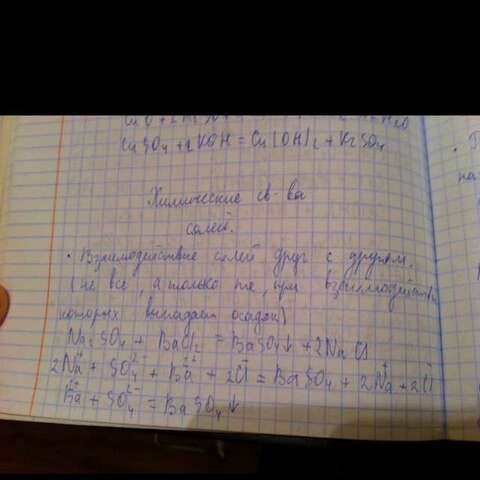 CuSO₄ + 2KOH = Cu(OH)₂ + K₂SO₄
Химические св-ва
солей.
• Взаимодействие солей друг с другом.
(не все, а только те, при взаимодейств
которых выпадает осадок)
Na₂SO₄ + BaCl₂ = BaSO₄↓ + 2NaCl
2Na⁺ + SO₄²⁻ + Ba²⁺ + 2Cl⁻ = BaSO₄ + 2Na⁺ + 2Cl⁻
Ba²⁺ + SO₄²⁻ = BaSO₄↓